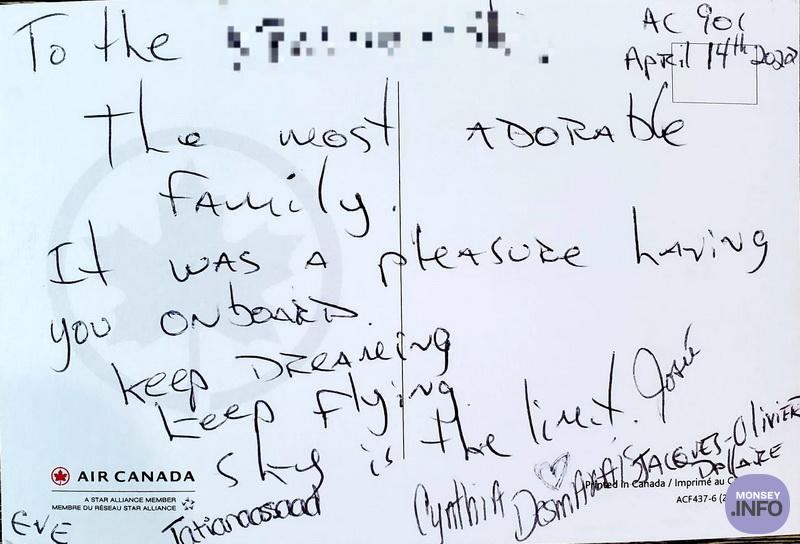 To the
AC 901
April 14th 2022
The most ADORAble
family.
It was a pleasure having
you onboard.
keep DREAMing
keep flying
Sky is the limit.
Josée
AIR CANADA
A STAR ALLIANCE MEMBER
MEMBRE DU RÉSEAU STAR ALLIANCE
EVE
Tatianaassaad
Cynthia Desmarais
JACQUES-Olivier
DALLAIRE
Printed in Canada / Imprimé au C
ACF437-6 (2
MONSEY
.INFO